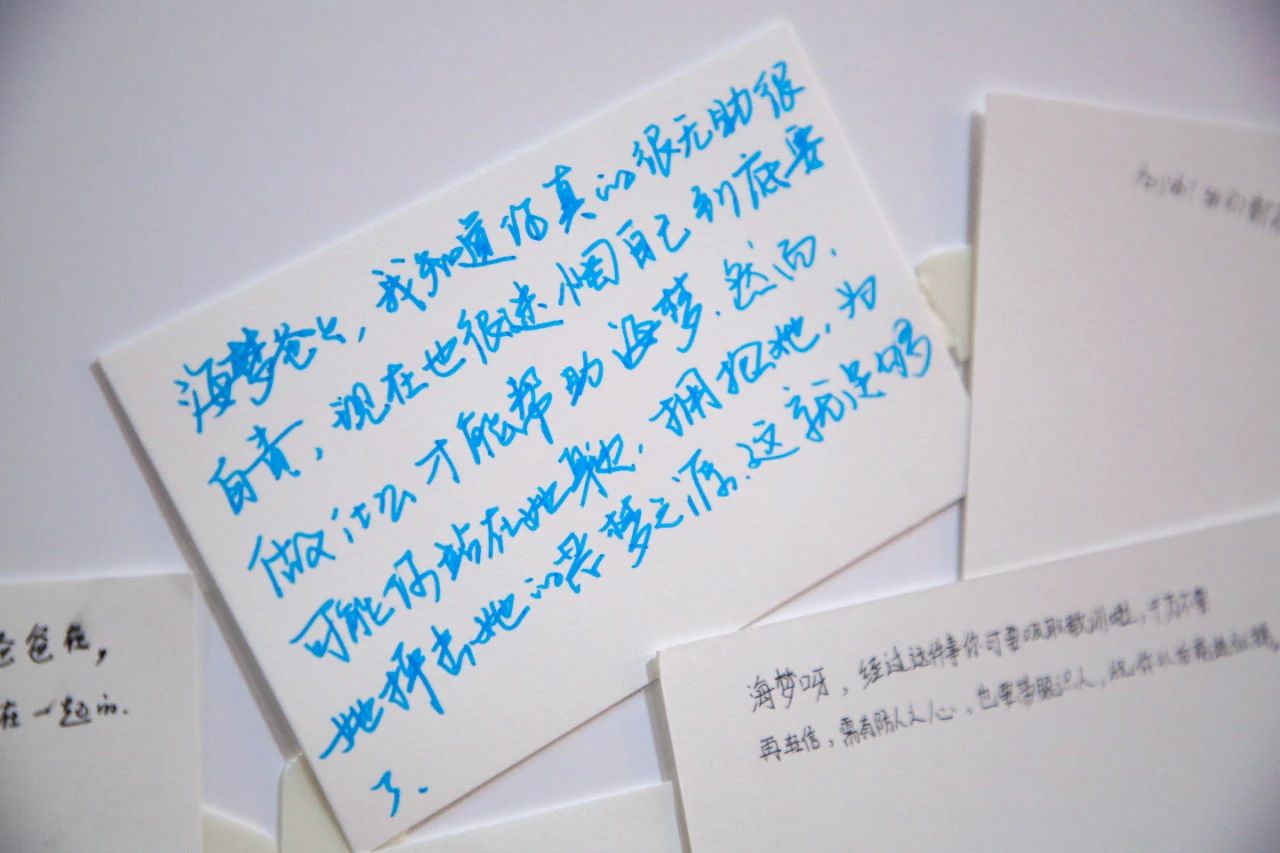 海梦爸爸，我知道你真的很无助很
自责，现在也很迷惘自己到底要
做什么才能帮助海梦.然而.
可能你站在她身边.拥抱她.为
她挥去她的噩梦之源.这就是够
了.
爸爸在，
在一起的.
海梦呀，经过这件事你可要吸取教训啦，千万不要
再轻信，需有防人之心，也要带眼识人，祝你以后
加油！我们